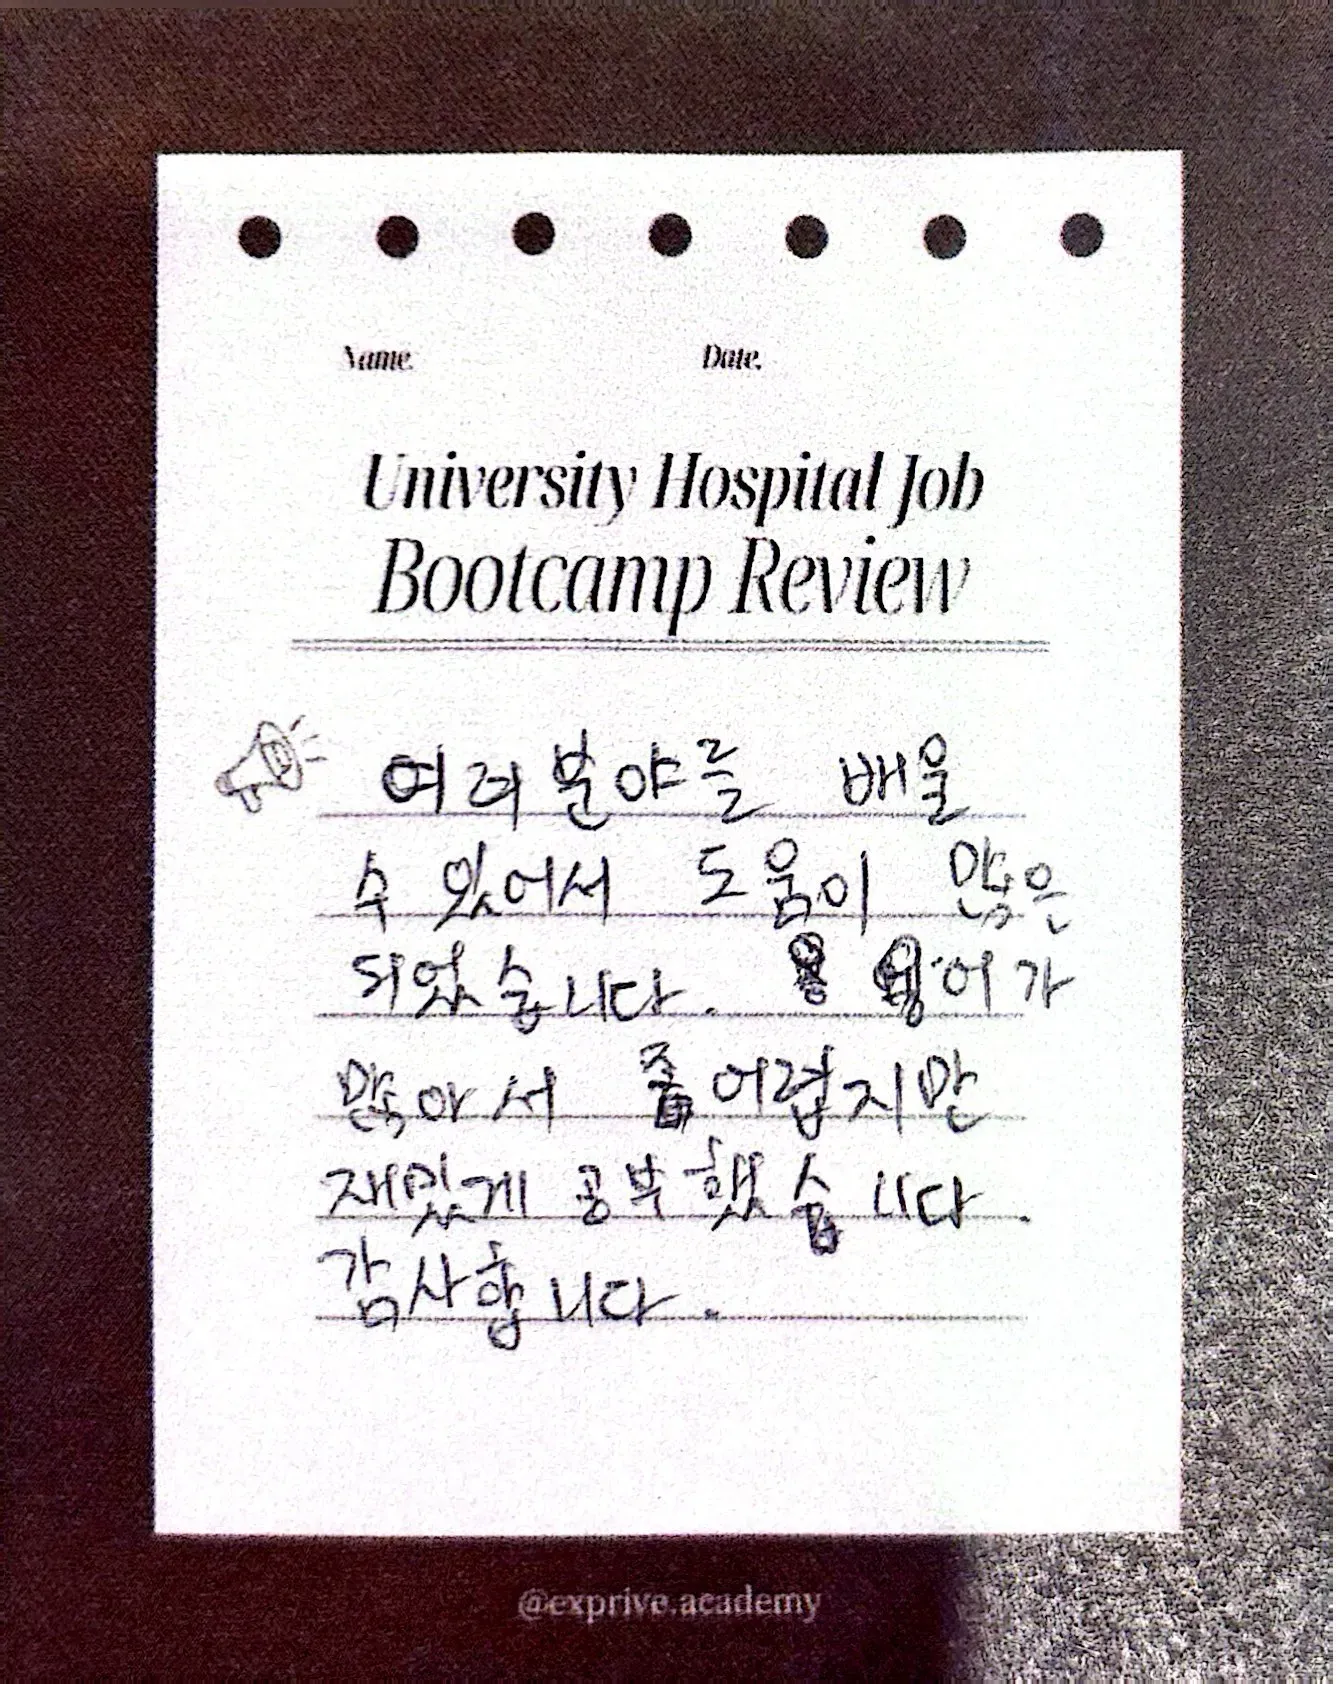 Name. Date.
University Hospital Job
Bootcamp Review
여러 분야를 배울
수 있어서 도움이 많은
되었습니다. 용어가
많아서 좀 어렵지만
재밌게 공부했습니다.
감사합니다.
@exprive.academy